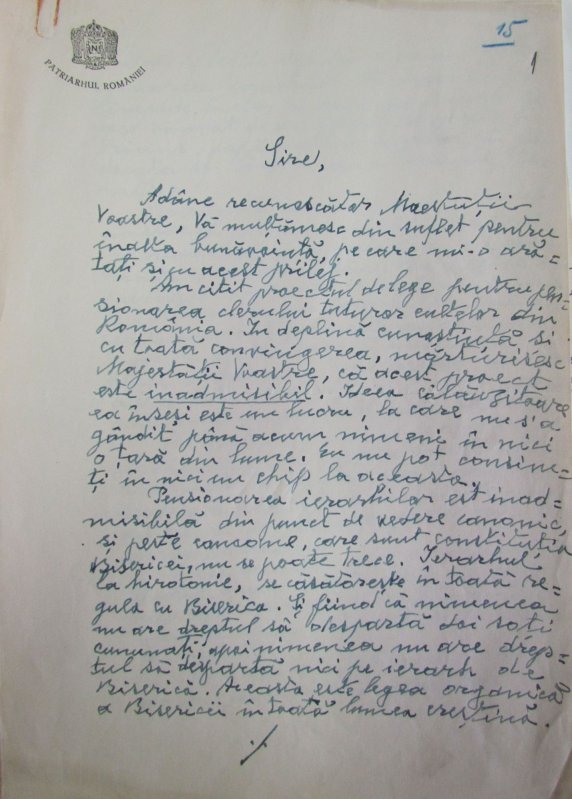 15
1
N
PATRIARHUL ROMÂNIEI
Sire,
Adânc recunoscător Maestății
Voastre, Vă mulțămesc din suflet pentru
înalta bunăvoință, pe care mi-o ară=
tați și cu acest prilej.
Am citit proectul de lege pentru pen=
sionarea clerului tuturor cultelor din
România. În deplină cunoștință și
cu toată convingerea, mărturisesc
Majestății Voastre, că acest proect
este inadmisibil. Ideea călăuzitoare
ea însăși este un lucru, la care nu s'a
gândit până acum nimeni în nici
o țară din lume. Eu nu pot consim=
ți în nici un chip la aceasta.
Pensionarea ierarhilor est inad=
misibilă din punct de vedere canonic,
și peste canoane, care sunt constituția
Bisericei, nu se poate trece. Ierarhul
la hirotonie, se căsătorește în toată re=
gula cu Biserica. Și fiindcă nimenea
nu are dreptul să despartă doi soți
cununați, apoi nimenea nu are drep=
tul să despartă nici pe ierarh de
Biserică. Aceasta este legea organică
a Bisericii în toată lumea creștină.
./.